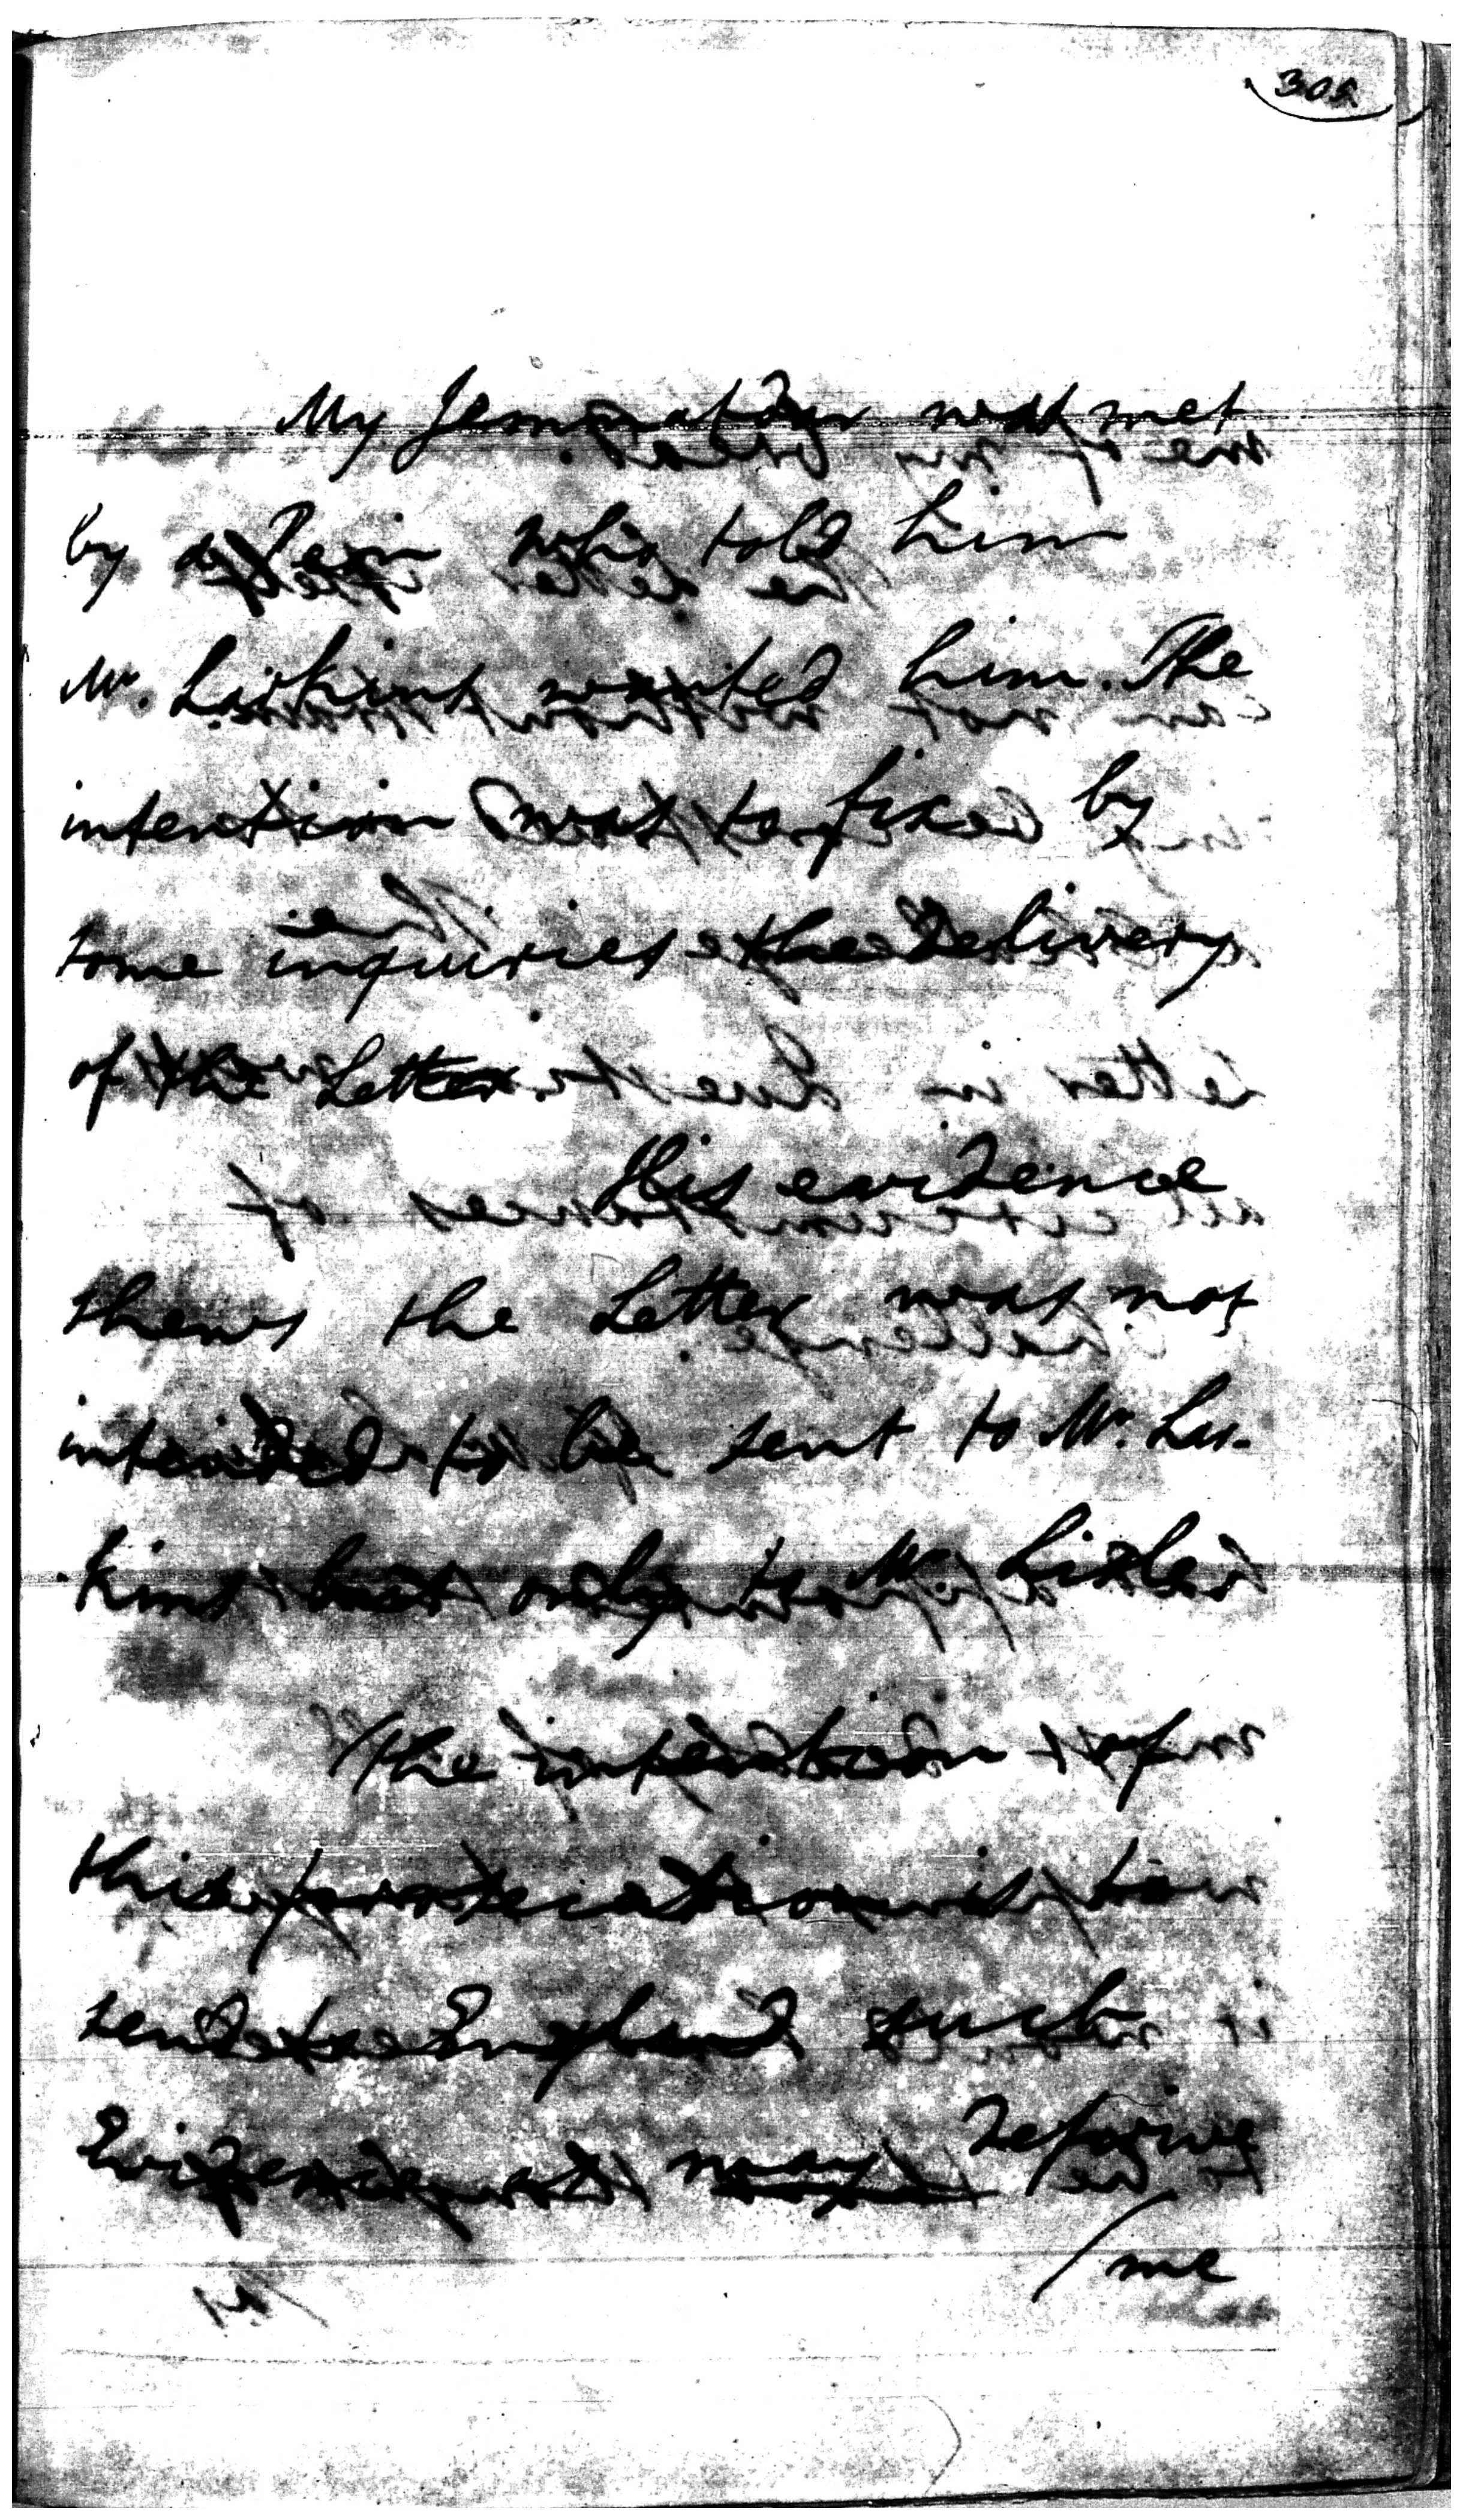 305
My Jemmatdar was met
by a Peon who told him
Mr. Larkins wanted him. The
intention was to fix by
some inquiries the Delivery
of the Letter.
His evidence
shews the Letter was not
intended to be sent to Mr. Lar-
kins but only to Mr.
The intention of
this is to
send to England such
Evidence as may
/me